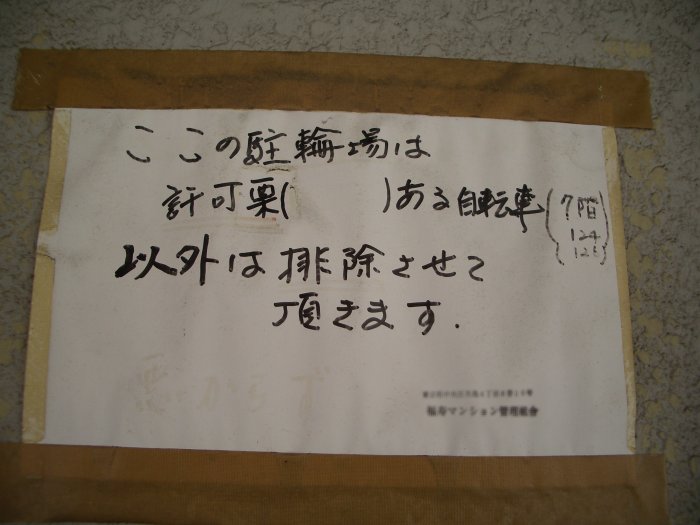 ここの駐輪場は
許可票(　　　)ある自転車(7階
124
126)
以外は排除させて
頂きます.
悪からず
福寿マンション管理組合